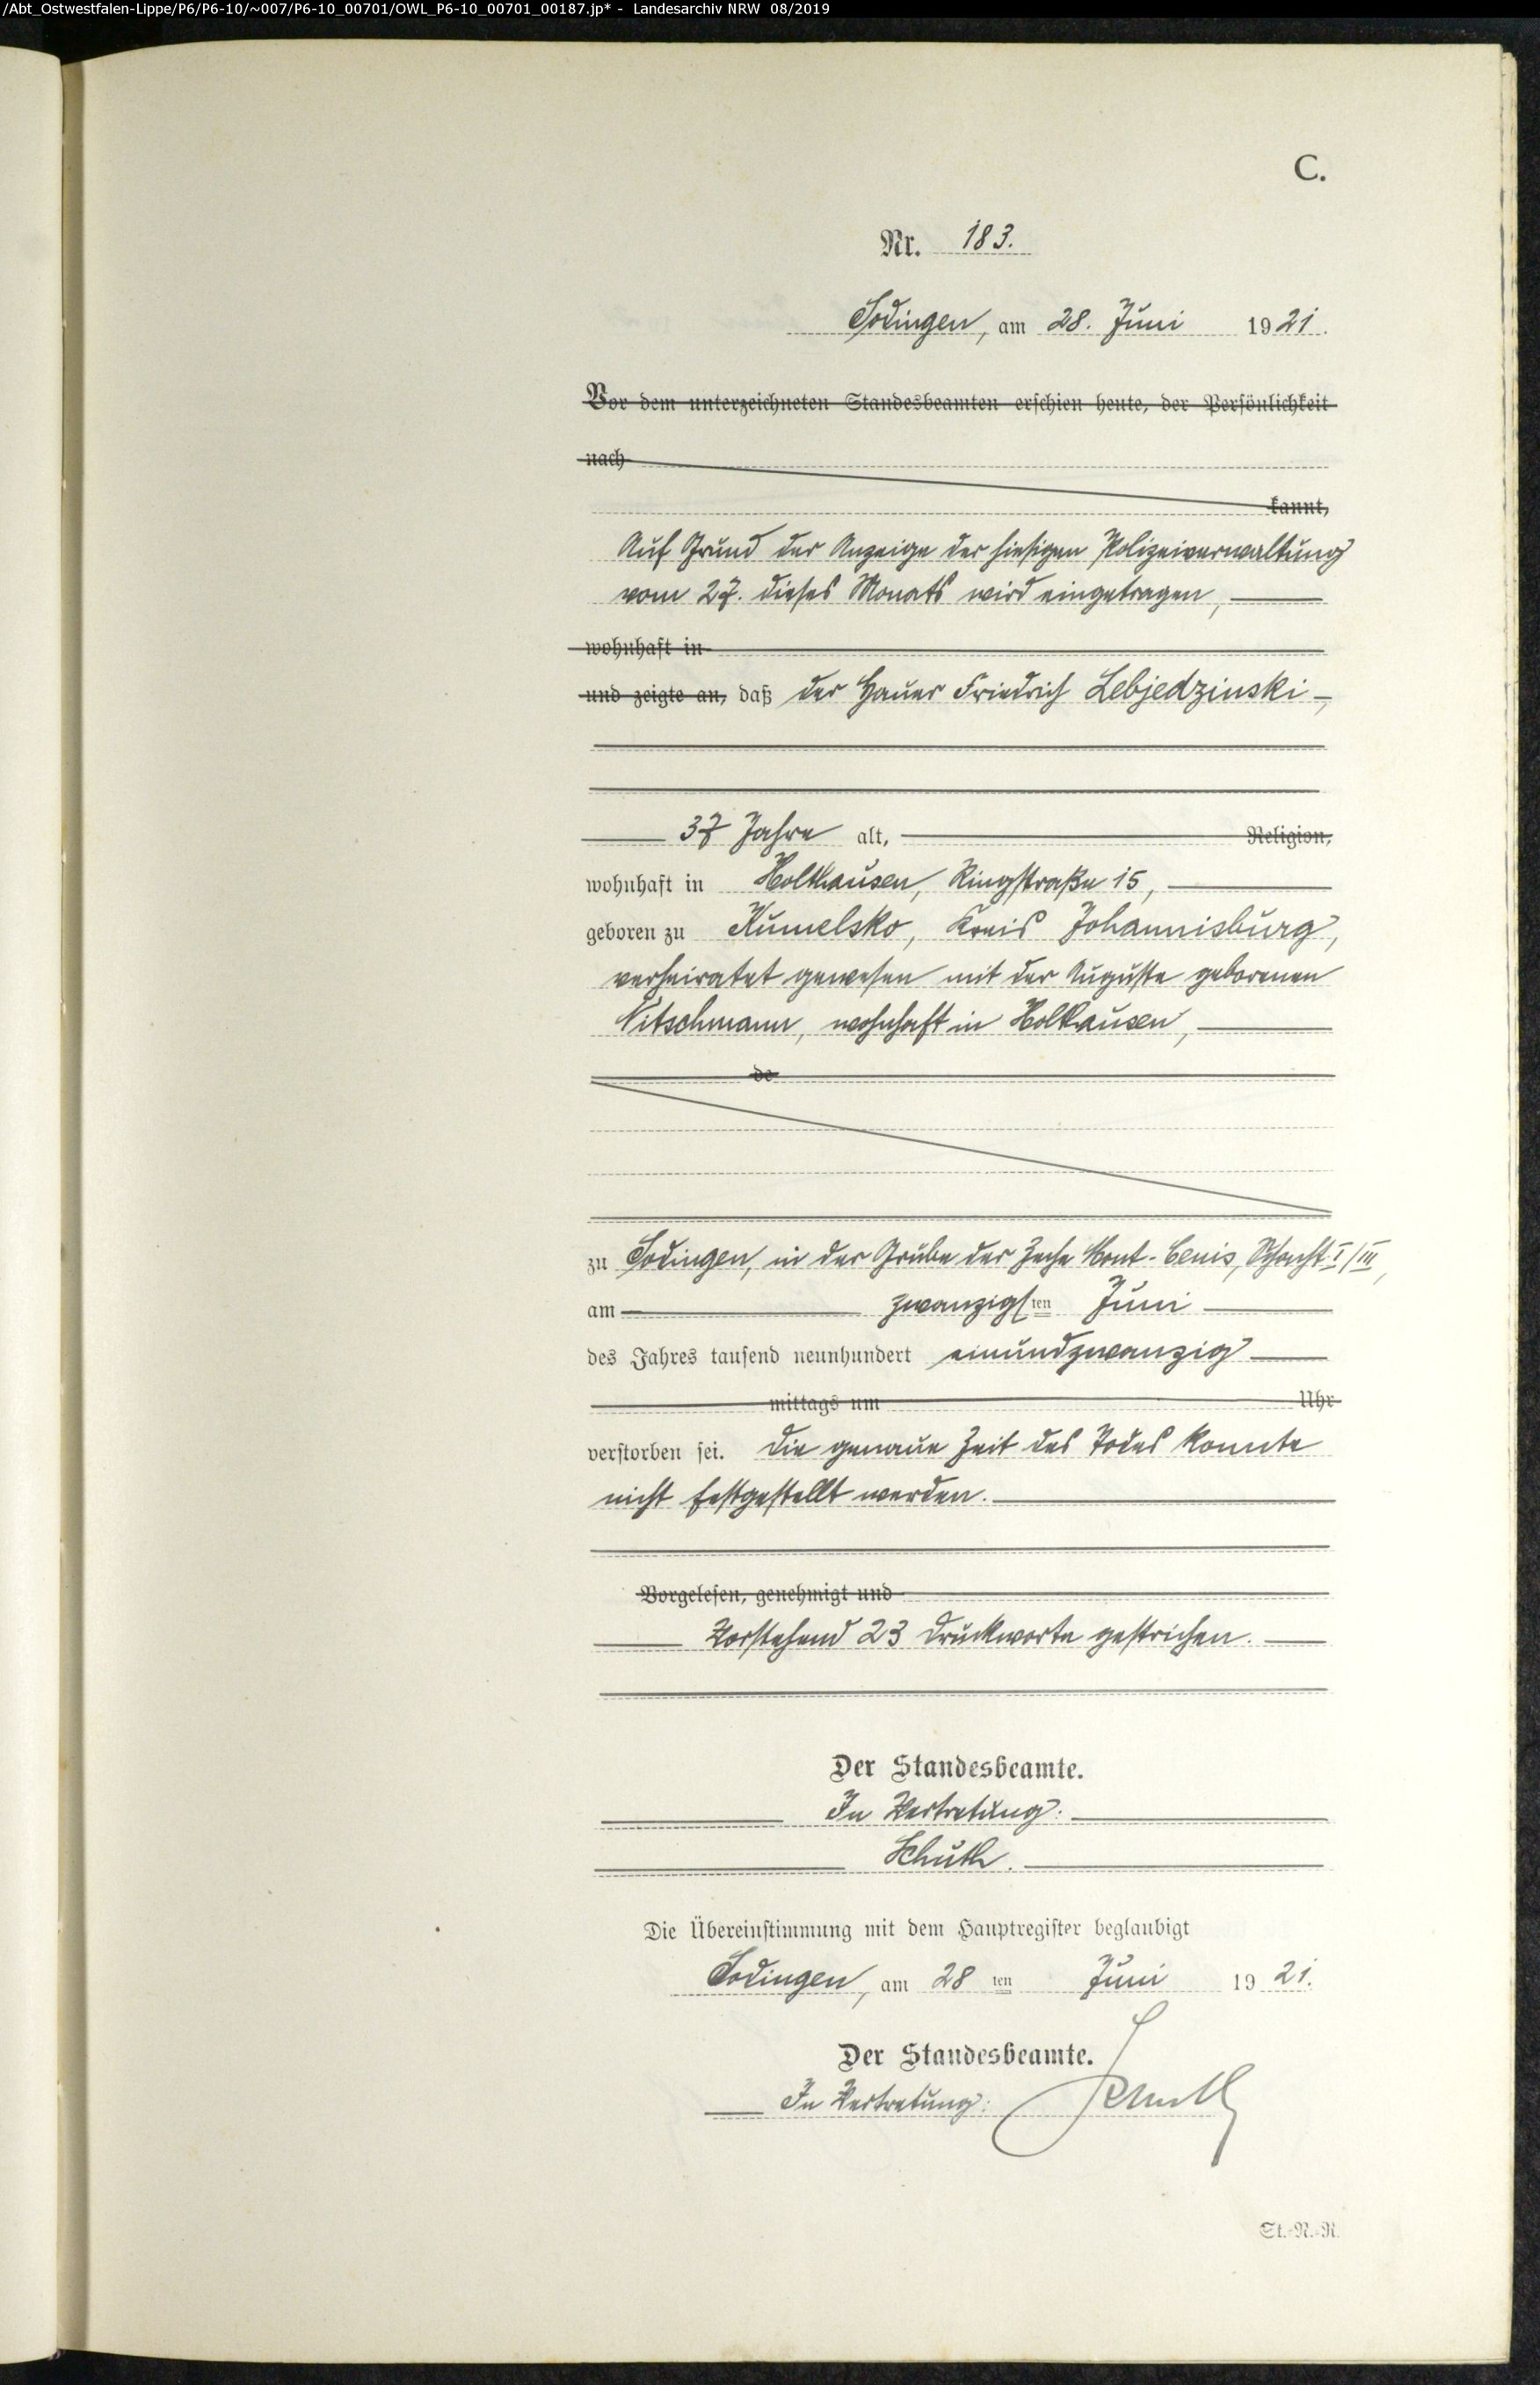 /Abt_Ostwestfalen-Lippe/P6/P6-10/~007/P6-10_00701/OWL_P6-10_00701_00187.jp* - Landesarchiv NRW 08/2019
C.
Nr. 183.
Sodingen, am 28. Juni 1921.
Vor dem unterzeichneten Standesbeamten erschien heute, der Persönlichkeit
nach
kannt,
Auf Grund der Anzeige der hiesigen Polizeiverwaltung
vom 27. dieses Monats wird eingetragen,
wohnhaft in
und zeigte an, daß der Hauer Friedrich Lebjedzinski,
37 Jahre alt, Religion,
wohnhaft in Holthausen, Ringstraße 15,
geboren zu Kumelsko, Kreis Johannisburg,
verheiratet gewesen mit der Auguste geborenen
Nitschmann, wohnhaft in Holthausen,
de
zu Sodingen, in der Grube der Zeche Mont-Cenis, Schacht I/III,
am zwanzigsten Juni
des Jahres tausend neunhundert einundzwanzig
mittags um Uhr
verstorben sei. Die genaue Zeit des Todes konnte
nicht festgestellt werden.
Vorgelesen, genehmigt und
Vorstehend 23 Druckworte gestrichen.
Der Standesbeamte.
In Vertretung:
Schuth.
Die Übereinstimmung mit dem Hauptregister beglaubigt
Sodingen, am 28 ten Juni 1921.
Der Standesbeamte.
In Vertretung: Schuth
St.-N.-R.